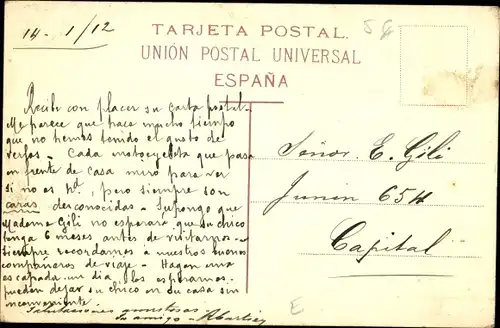 14 - 1/12
TARJETA POSTAL.
UNIÓN POSTAL UNIVERSAL
ESPAÑA
58
Recibí con placer su carta postal.
Me parece que hace mucho tiempo
que no hemos tenido el gusto de
verlos - Cada motocycleta que pasa
en frente de casa miro para ver
si no es Ud, pero siempre son
caras desconocidas - Supongo que
Madame Gili no esperará que su chico
tenga 6 meses antes de visitarnos -
siempre recordamos a nuestros buenos
compañeros de viaje - Hagan una
escapada un dia, los esperamos,
pueden dejar su chico en su casa sin
inconveniente.
Salutaciones amistosas
Su amigo -
Señor. E. Gili
Junin 654
Capital
E